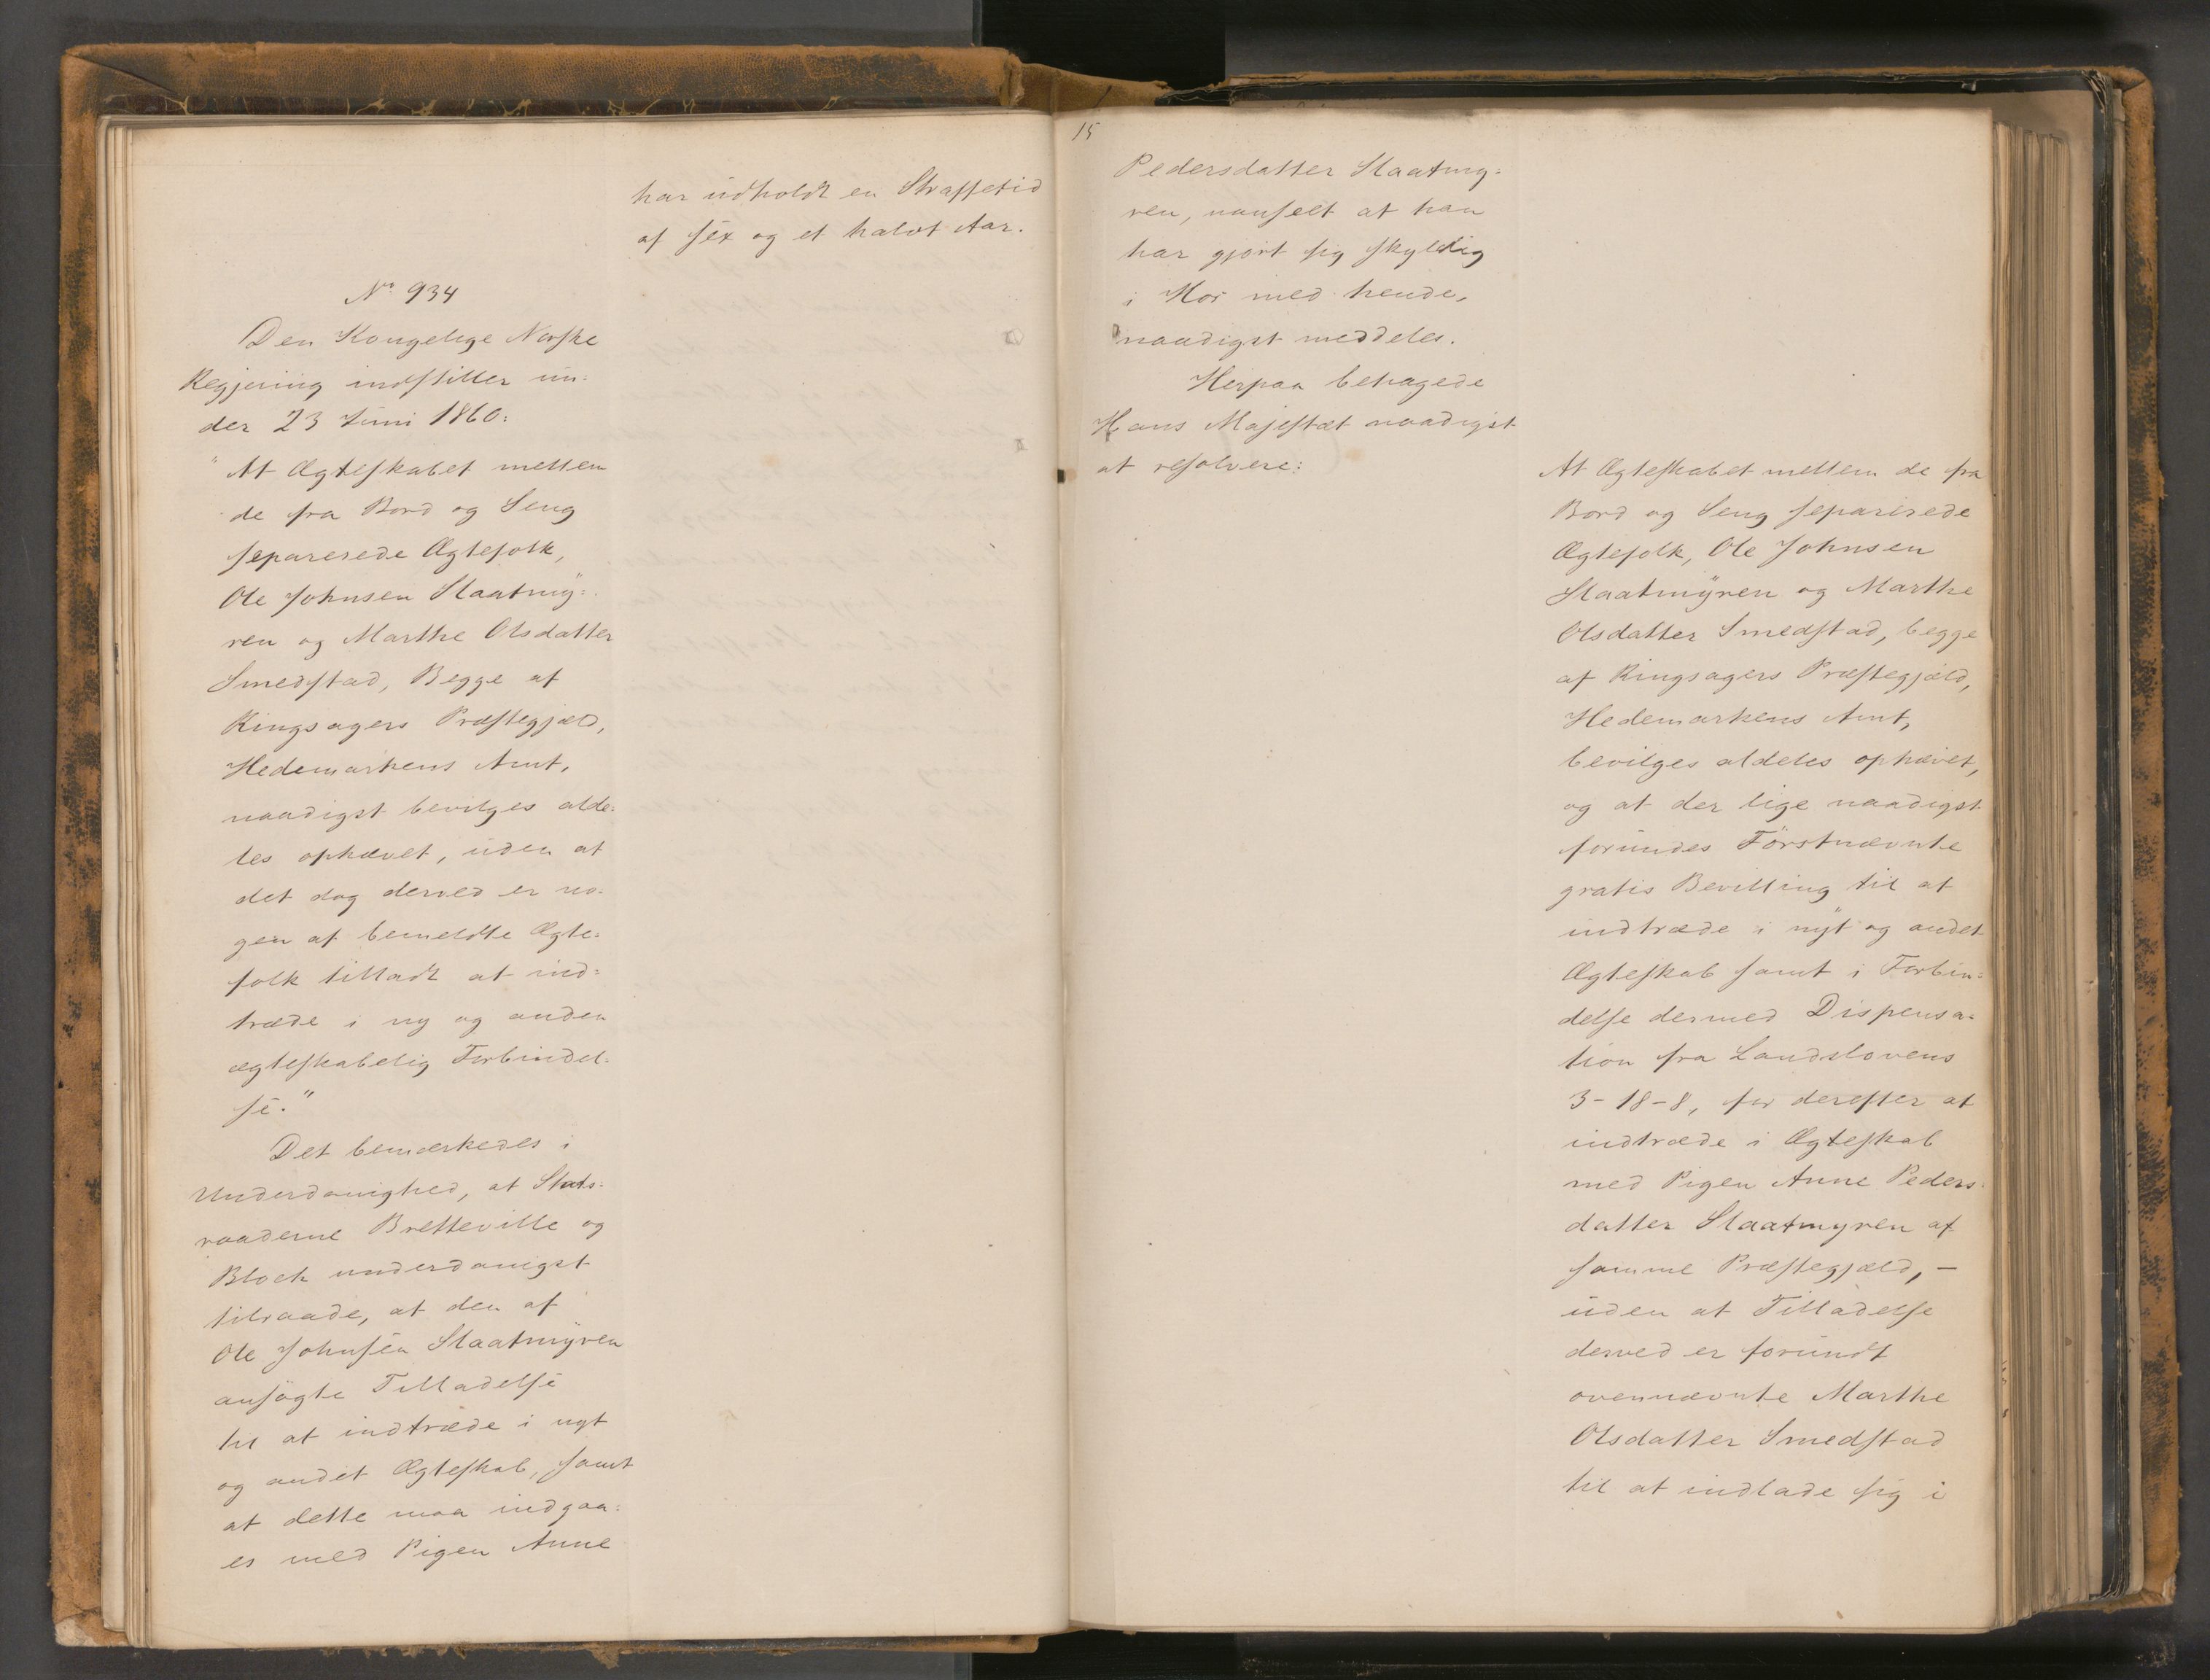 har udholdt en Straffetid
af sex og et halvt Aar.
No 934
Den Kongelige Norske
Regjering indstiller un-
der 23 Juni 1860:
"At Ægteskabet mellem
de fra Bord og Seng
separerede Ægtefolk,
Ole Johnsen Slaatmy-
ren og Marthe Olsdatter
Smedstad, Begge af
Ringsagers Præstegjæld,
Hedemarkens Amt,
naadigst bevilges alde-
les ophævet, uden at
det dog derved er no-
gen af bemeldte Ægte-
folk tilladt at ind-
træde i ny og anden
ægteskabelig Forbindel-
se."
Det bemærkedes i
Underdanighed, at Stats-
raaderne Bretteville og
Bloch underdanigst
tilraade, at den af
Ole Johnsen Slaatmyren
ansøgte Tilladelse
til at indtræde i nyt
og andet Ægteskab, samt
at dette maa indgaa-
es med Pigen Anne
15
Pedersdatter Slaatmy-
ren, uanseet at han
har gjort sig skyldig
i Hor med hende,
naadigst meddeles.
Herpaa behagede
Hans Majestæt naadigst
at resolvere:
At Ægteskabet mellem de fra
Bord og Seng separerede
Ægtefolk, Ole Johnsen
Slaatmyren og Marthe
Olsdatter Smedstad, begge
af Ringsagers Præstegjæld,
Hedemarkens Amt,
bevilges aldeles ophævet,
og at der lige naadigst
forundes Førstnævnte
gratis Bevilling til at
indtræde i nyt og andet
Ægteskab samt i Forbin-
delse dermed Dispensa-
tion fra Landslovens
3-18-8, for derefter at
indtræde i Ægteskab
med Pigen Anne Peders-
datter Slaatmyren af
samme Præstegjæld, —
uden at Tilladelse
derved er forundt
ovennævnte Marthe
Olsdatter Smedstad
til at indlade sig i